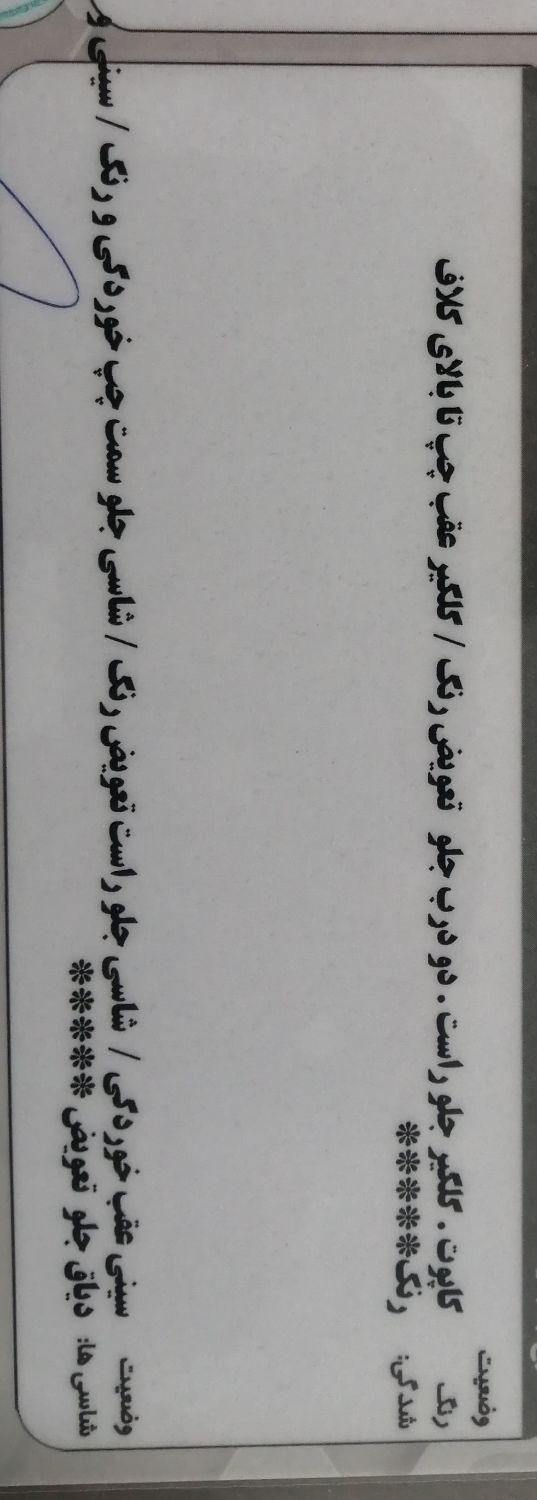 وضعیت رنگ شدگی:
کاپوت . گلگیر جلو راست . دو درب جلو تعویض رنگ / گلگیر عقب چپ تا بالای کلاف
رنگ*****
وضعیت شاسی ها:
سینی عقب خوردگی / شاسی جلو راست تعویض رنگ / شاسی جلو سمت چپ خوردگی و رنگ / سینی و
دیاق جلو تعویض *****